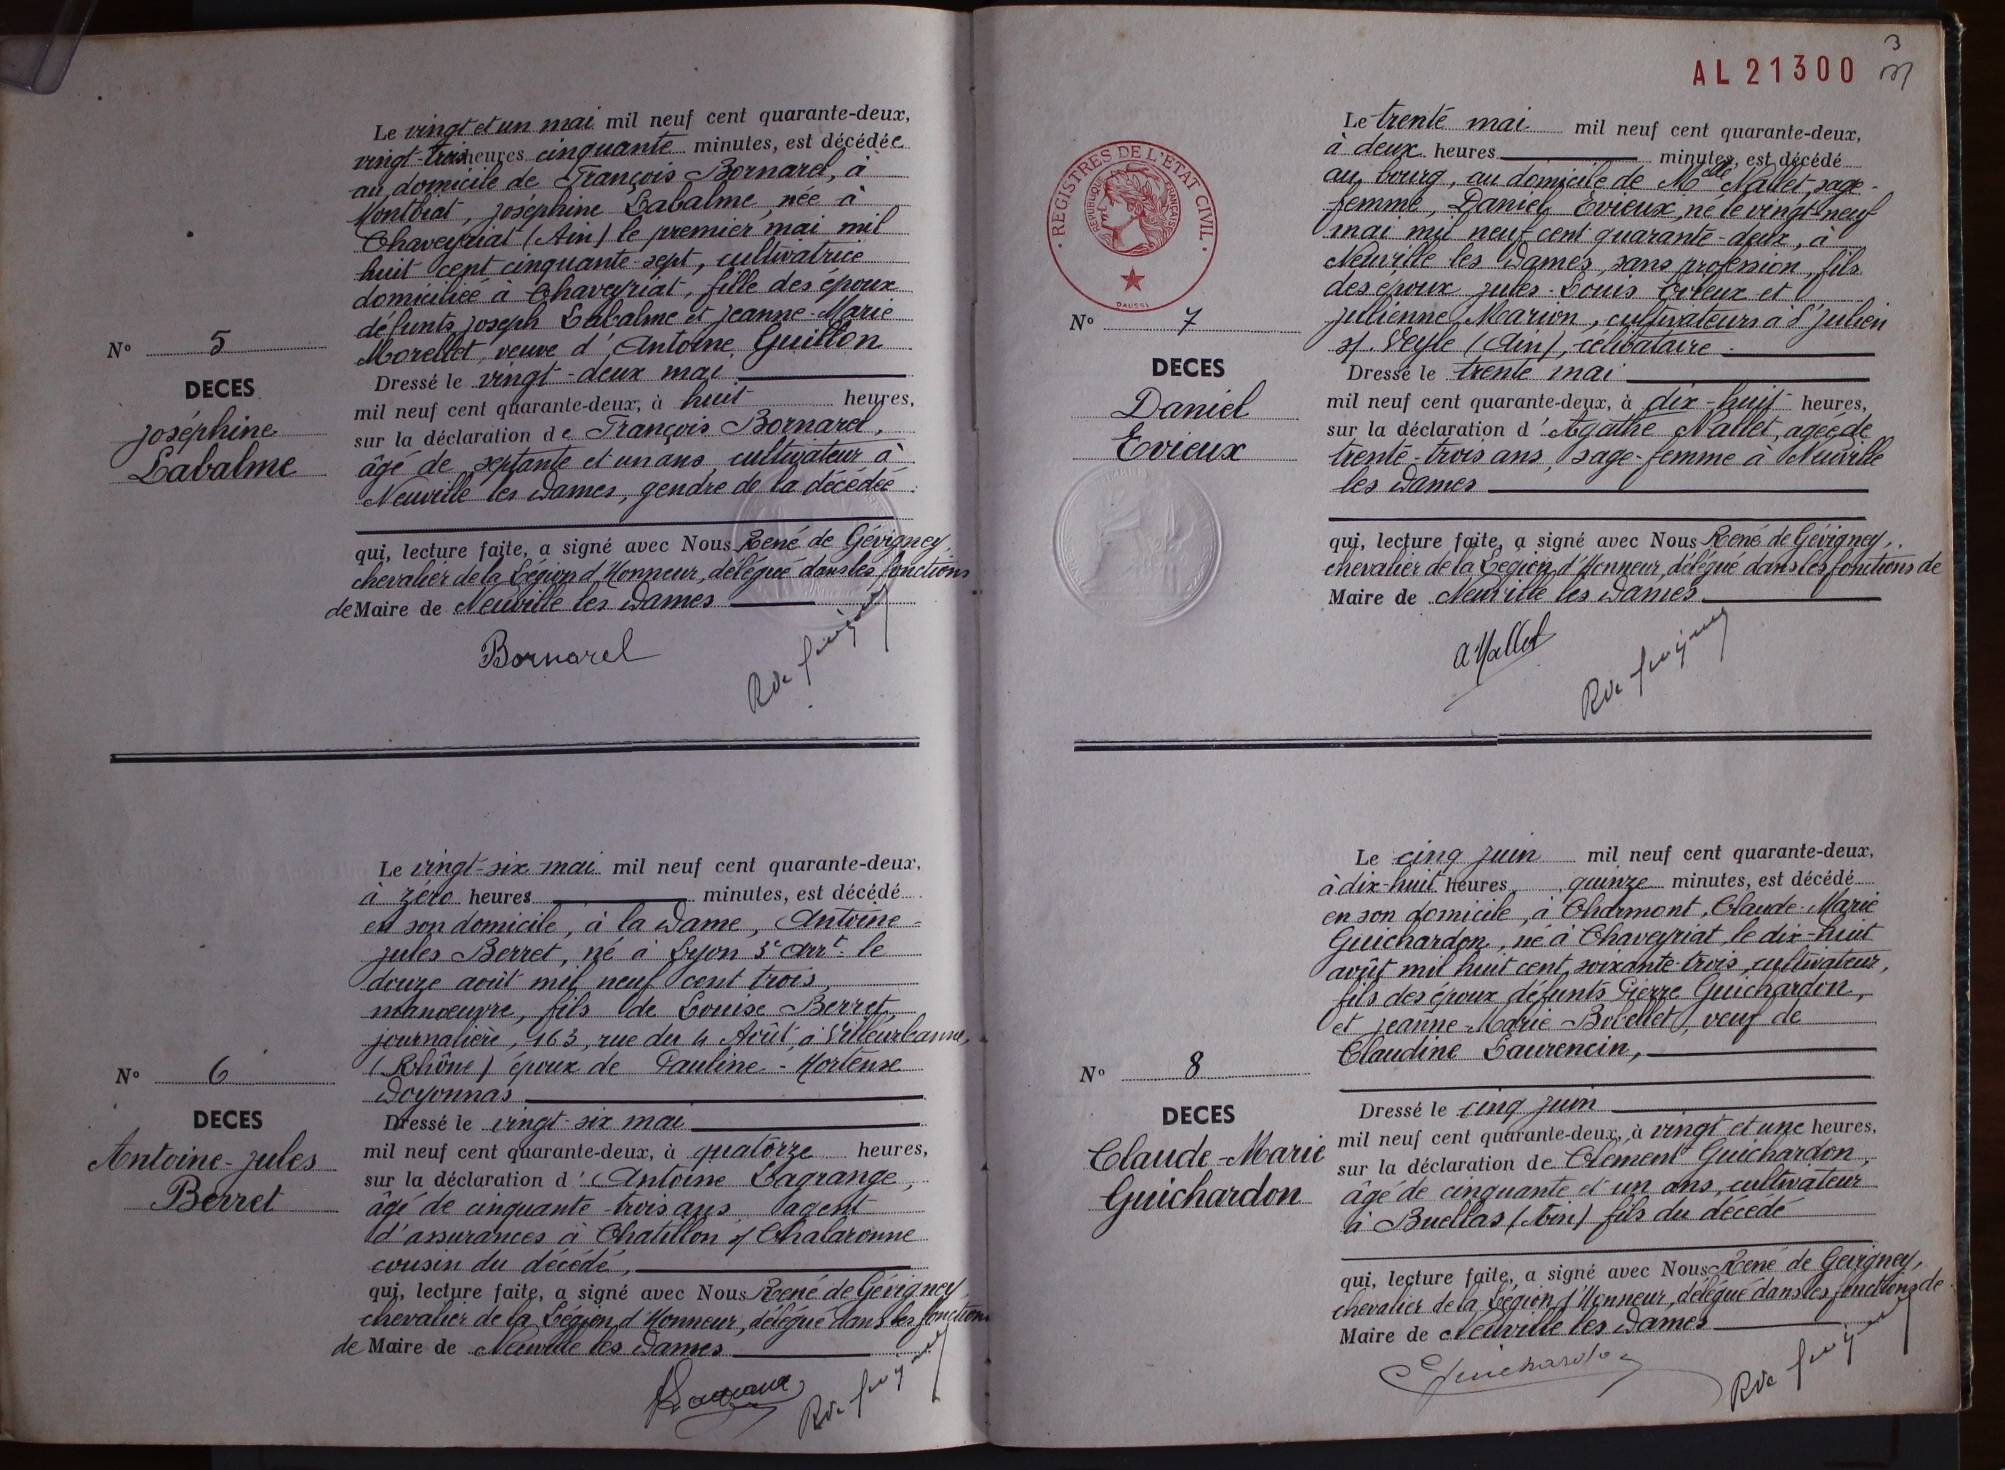 Le vingt et un mai mil neuf cent quarante-deux,
vingt-trois heures cinquante minutes, est décédée
au domicile de François Bornarel, à
Montbiat, joséphine Labalme, née à
Chaveyriat (Ain) le premier mai mil
huit cent cinquante-sept, cultivatrice
domiciliée à Chaveyriat, fille des époux
défunts joseph Labalme et jeanne-Marie
Morellet, veuve d'Antoine Guillon
N° 5
DECES
joséphine
Labalme
Dressé le vingt-deux mai
mil neuf cent quarante-deux, à huit heures,
sur la déclaration de François Bornarel,
âgé de septante et un ans, cultivateur à
Neuville les Dames, gendre de la décédée
qui, lecture faite, a signé avec Nous René de Gévigney,
chevalier de la Légion d'Honneur, délégué dans les fonctions
de Maire de Neuville les Dames
Bornarel
R de Gévigney
Le vingt-six mai mil neuf cent quarante-deux,
à zéro heures minutes, est décédé
en son domicile, à la Dame, Antoine-
jules Berret, né à Lyon 3e Arrt le
douze août mil neuf cent trois,
manœuvre, fils de Louise Berret,
journalière, 163, rue du 4 Août, à Villeurbanne,
(Rhône) époux de Pauline-Hortense
Doyonnas
N° 6
DECES
Antoine-jules
Berret
Dressé le vingt-six mai
mil neuf cent quarante-deux, à quatorze heures,
sur la déclaration d'Antoine Lagrange,
âgé de cinquante-trois ans, agent
d'assurances à Chatillon s/ Chalaronne
cousin du décédé,
qui, lecture faite, a signé avec Nous René de Gévigney
chevalier de la Légion d'Honneur, délégué dans les fonctions
de Maire de Neuville les Dames
R de Gévigney
AL 21300
3
REGISTRES DE L'ETAT CIVIL
REPUBLIQUE FRANÇAISE
DAUSSI
Le trente mai mil neuf cent quarante-deux,
à deux heures minutes, est décédé
au bourg, au domicile de Melle Nallet, sage-
femme, Daniel Evieux, né le vingt-neuf
mai mil neuf cent quarante-deux, à
Neuville les Dames, sans profession, fils
des époux jules-Louis Evieux et
julienne Marion, cultivateurs à St julien
s/. Veyle (Ain), célibataire
N° 7
DECES
Daniel
Evieux
Dressé le trente mai
mil neuf cent quarante-deux, à dix-huit heures,
sur la déclaration d'Agathe Nallet, agée de
trente-trois ans, sage-femme à Neuville
les Dames
qui, lecture faite, a signé avec Nous René de Gévigney,
chevalier de la Légion d'Honneur, délégué dans les fonctions de
Maire de Neuville les Dames
A Nallet
R de Gévigney
Le cinq juin mil neuf cent quarante-deux,
à dix-huit heures, quinze minutes, est décédé
en son domicile, à Charmont, Claude-Marie
Guichardon, né à Chaveyriat, le dix-huit
août mil huit cent soixante-trois, cultivateur,
fils des époux défunts Pierre Guichardon,
et jeanne-Marie veuf de
Claudine Laurencin,
N° 8
DECES
Claude-Marie
Guichardon
Dressé le cinq juin
mil neuf cent quarante-deux, à vingt et une heures,
sur la déclaration de Clément Guichardon,
âgé de cinquante et un ans, cultivateur
à Buellas (Ain) fils du décédé
qui, lecture faite, a signé avec Nous René de Gévigney,
chevalier de la Légion d'Honneur, délégué dans les fonctions de
Maire de Neuville les Dames
C Guichardon
R de Gévigney